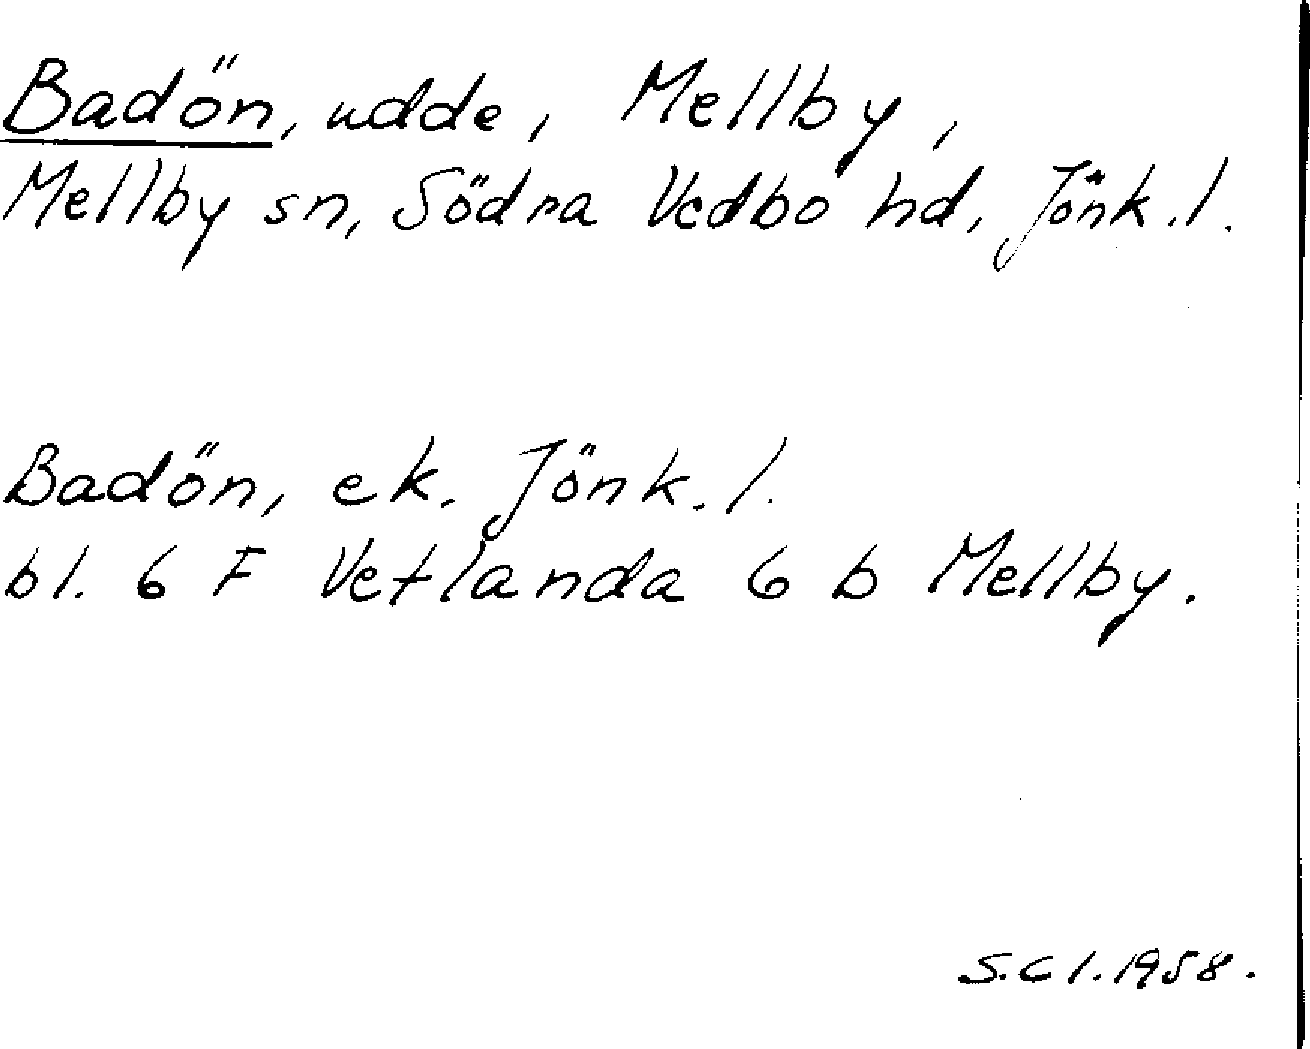 Badön, udde, Mellby,
Mellby sn, Södra Vedbo hd, Jönk.l.
Badön, ek. Jönk.l.
bl. 6 F Vetlanda 6 b Mellby.
S.Cl.1958.